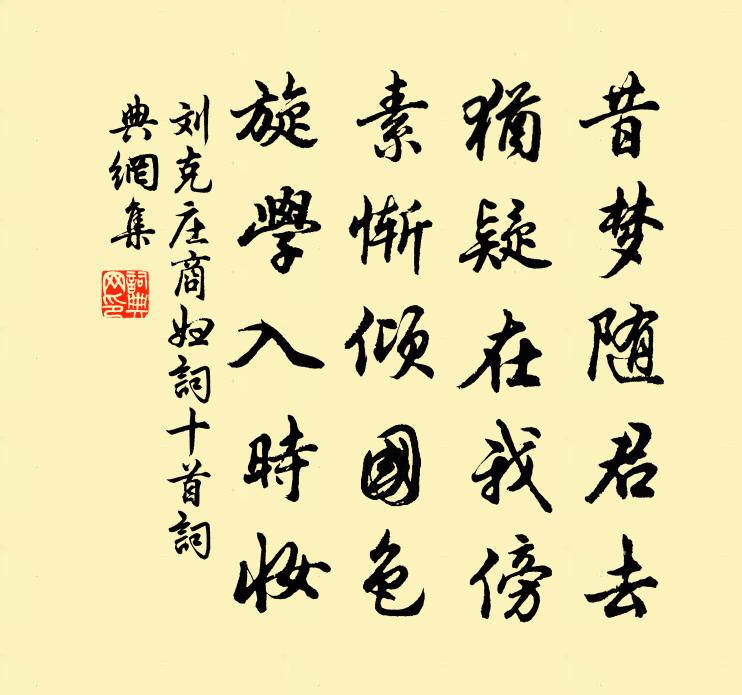 昔梦随君去
犹疑在我傍
素惭倾國色
旋學入時妆
刘克庄商妇詞十首詞
典網集
詞典
网印